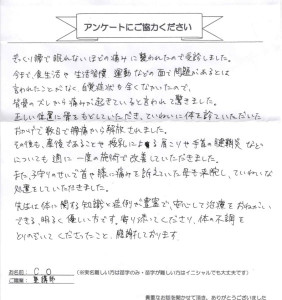 アンケートにご協力ください
ぎっくり腰で眠れないほどの痛みに襲われたので受診しました。
今まで、食生活や生活習慣 運動などの面で問題があるとは
言われたことがなく、自覚症状が全くなかったので、
背骨のズレから痛みが起きていると言われて驚きました。
正しい位置に骨をもどしていただき、ていねいに体を診ていただいた
おかげで数日で腰痛から解放されました。
その後も、産後であることや授乳による肩こりや手首の腱鞘炎などに
ついても週に一度の施術で改善していただきました。
また、子守りのせいで首や膝に痛みを訴えていた母も来院し、ていねいな
処置をしていただきました。
先生は体に関する知識と症例が豊富で、安心して治療をおねがい
できる、明るく優しい方です。寄り添ってくださり、体の不調を
とりのぞいてくださったこと、感謝しております
お名前: C O (※実名難しい方は苗字のみ・苗字が難しい方はイニシャルでも大丈夫です)
ご職業:
貴重なお話を聞かせて頂き、ありがとうございました